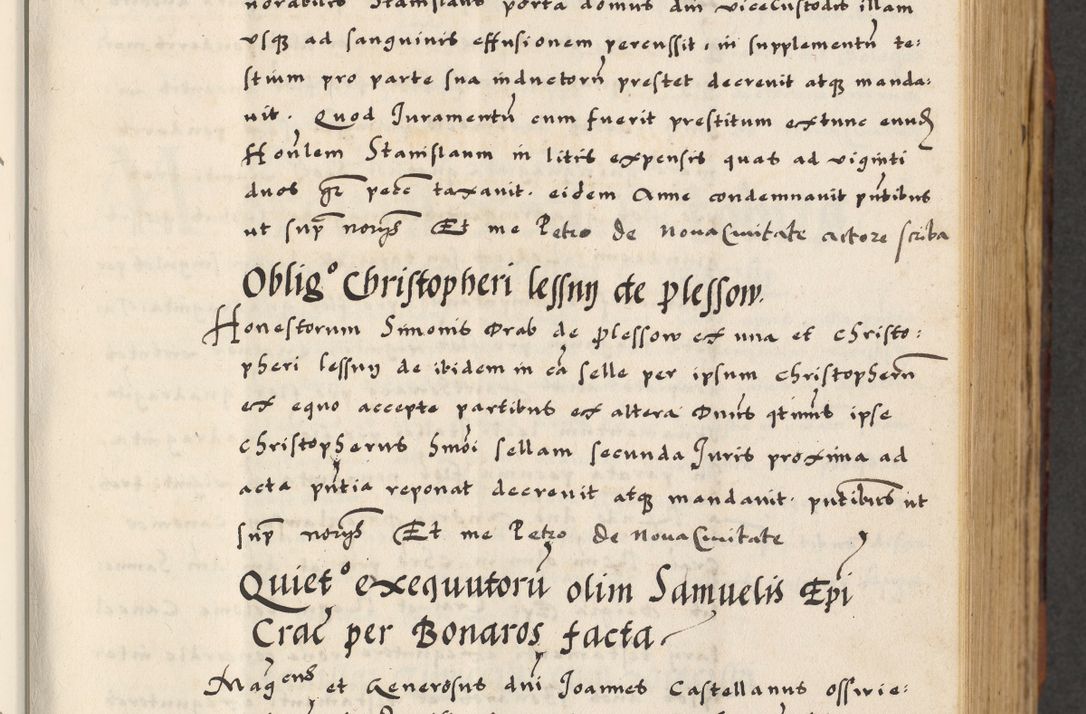 norabilis Stanislaus porta domus dni viceCustodis illam
vsqꝫ ad sanguinis effusionem percussit, in supplementū te:
stium pro parte sua inductorū prestet decreuit atqꝫ manda:
uit. Quod Iuramentū cum fuerit prestitum extunc eund
Honlem Stanislaum in litis expensis quas ad viginti
duos gr pecc taxauit. eidem Anne condemnauit pntibus
ut sup norgs Et me Petro de NovaCiuitate actore scriba
Obligº Christopheri lessny de Plessow.
Honestorum Simonis Drab de Plessow ex una et Christo:
pheri lessny de ibidem in cā selle per ipsum Christopherū
ex equo accepte partibus ex altera Dnus qtinus ipse
Christopherus Smōi sellam secunda Iuris proxima ad
acta pntia reponat decreuit atqꝫ mandauit. pntibus ut
sup norgs Et me Petro de NovaCiuitate
Quietº exequutorū olim Samuelis Epi
Crac per Bonaros facta
Magcens et Generosus dni Joannes Castellanus osswie: